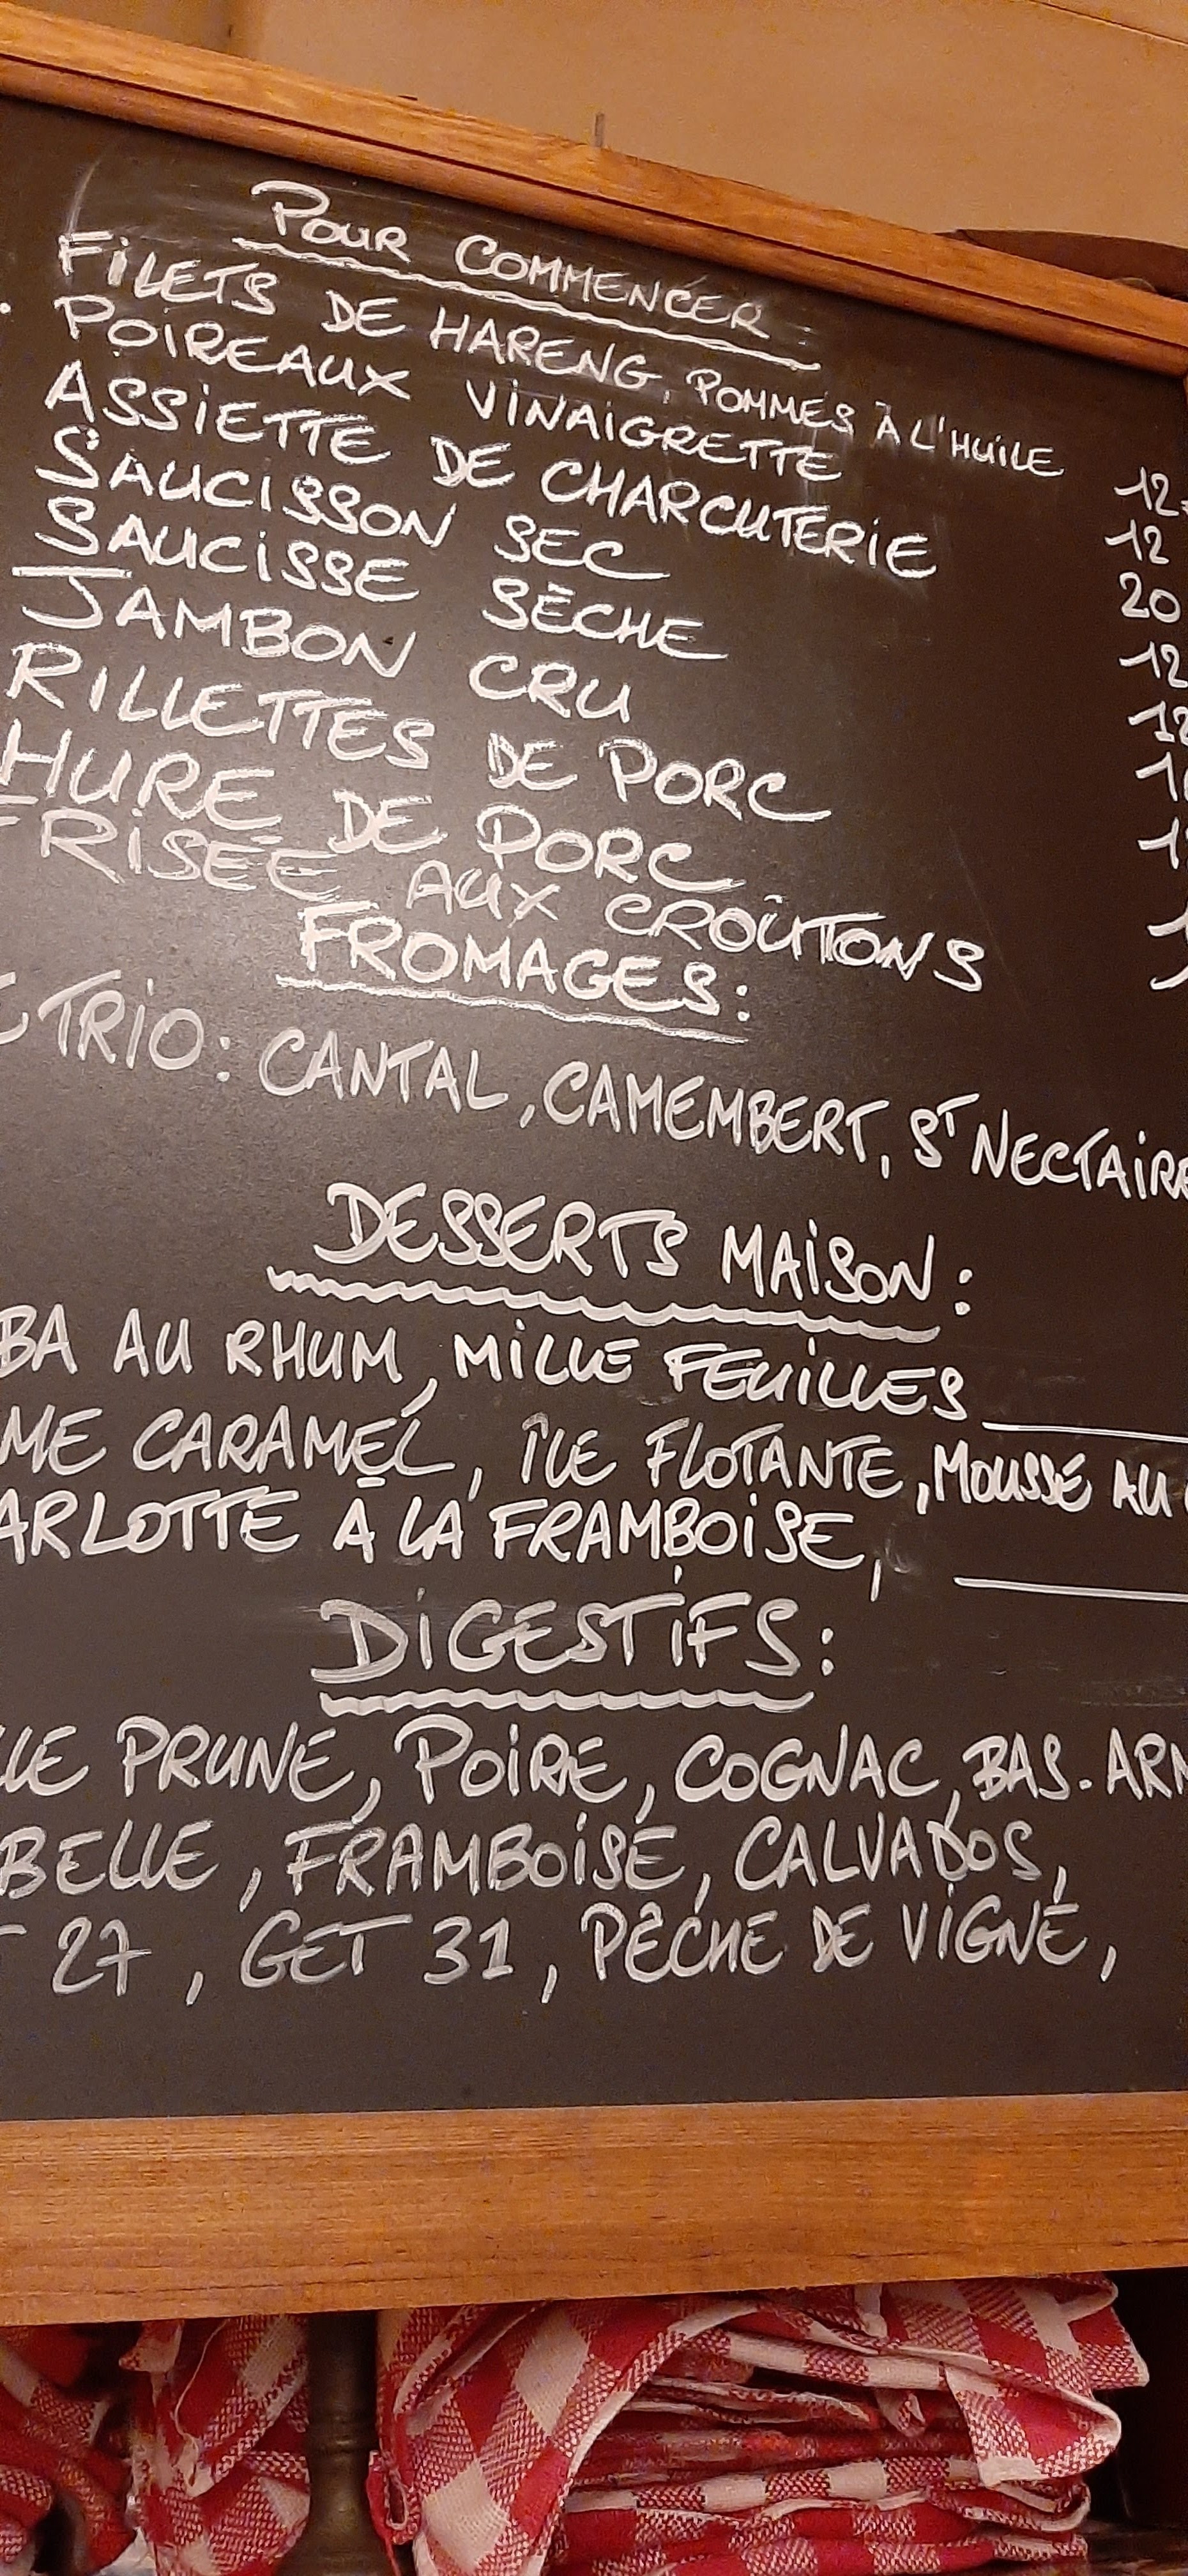 POUR COMMENCER
FILETS DE HARENG, POMMES À L'HUILE 12
POIREAUX VINAIGRETTE 12
ASSIETTE DE CHARCUTERIE 20
SAUCISSON SEC 12
SAUCISSE SÈCHE 12
JAMBON CRU
RILLETTES DE PORC
HURE DE PORC
FRISEE AUX CROÛTONS
FROMAGES:
TRIO: CANTAL, CAMEMBERT, ST NECTAIRE
DESSERTS MAISON:
BA AU RHUM, MILLE FEUILLES
ME CARAMEL, ÎLE FLOTANTE, MOUSSE AU
ARLOTTE A LA FRAMBOISE,
DIGESTIFS:
PRUNE, POIRE, COGNAC, BAS-ARM
BELLE, FRAMBOISE, CALVADOS,
27, GET 31, PÊCHE DE VIGNE,